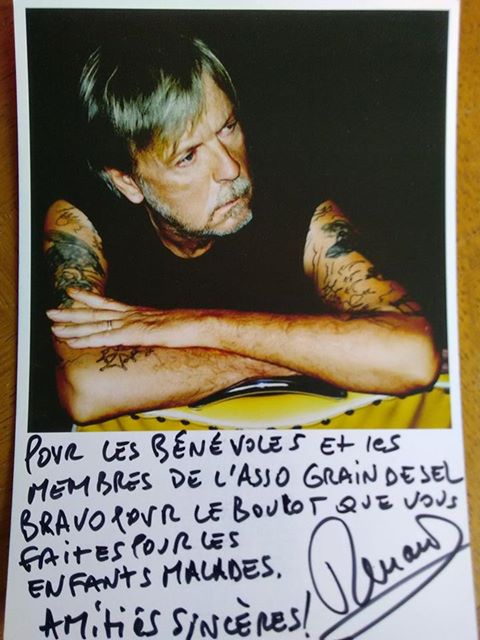 POUR LES BÉNÉVOLES Et les
MEMBRES DE L'ASSO GRAINDESEL
BRAVO POUR LE BOULOT QUE VOUS
FAITES POUR LES
ENFANTS MALADES.
AMITIÉS SINCÈRES!
Renaud